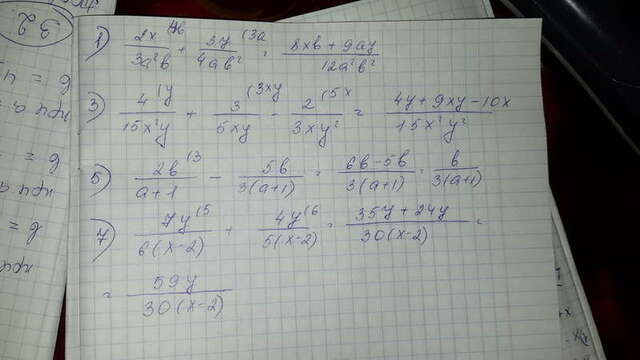 1) 2x(4b / 3a²b + 3y(3a / 4ab² = 8xb + 9ay / 12a²b²
3) 4(y / 15x²y + 3(3xy / 5xy - 2(5x / 3xy² = 4y + 9xy - 10x / 15x²y²
5) 2b(3 / a+1 - 5b / 3(a+1) = 6b - 5b / 3(a+1) = b / 3(a+1)
7) 7y(5 / 6(x-2) + 4y(6 / 5(x-2) = 35y + 24y / 30(x-2) =
= 59y / 30(x-2)
3 2
в =
при а
в =
в =
при